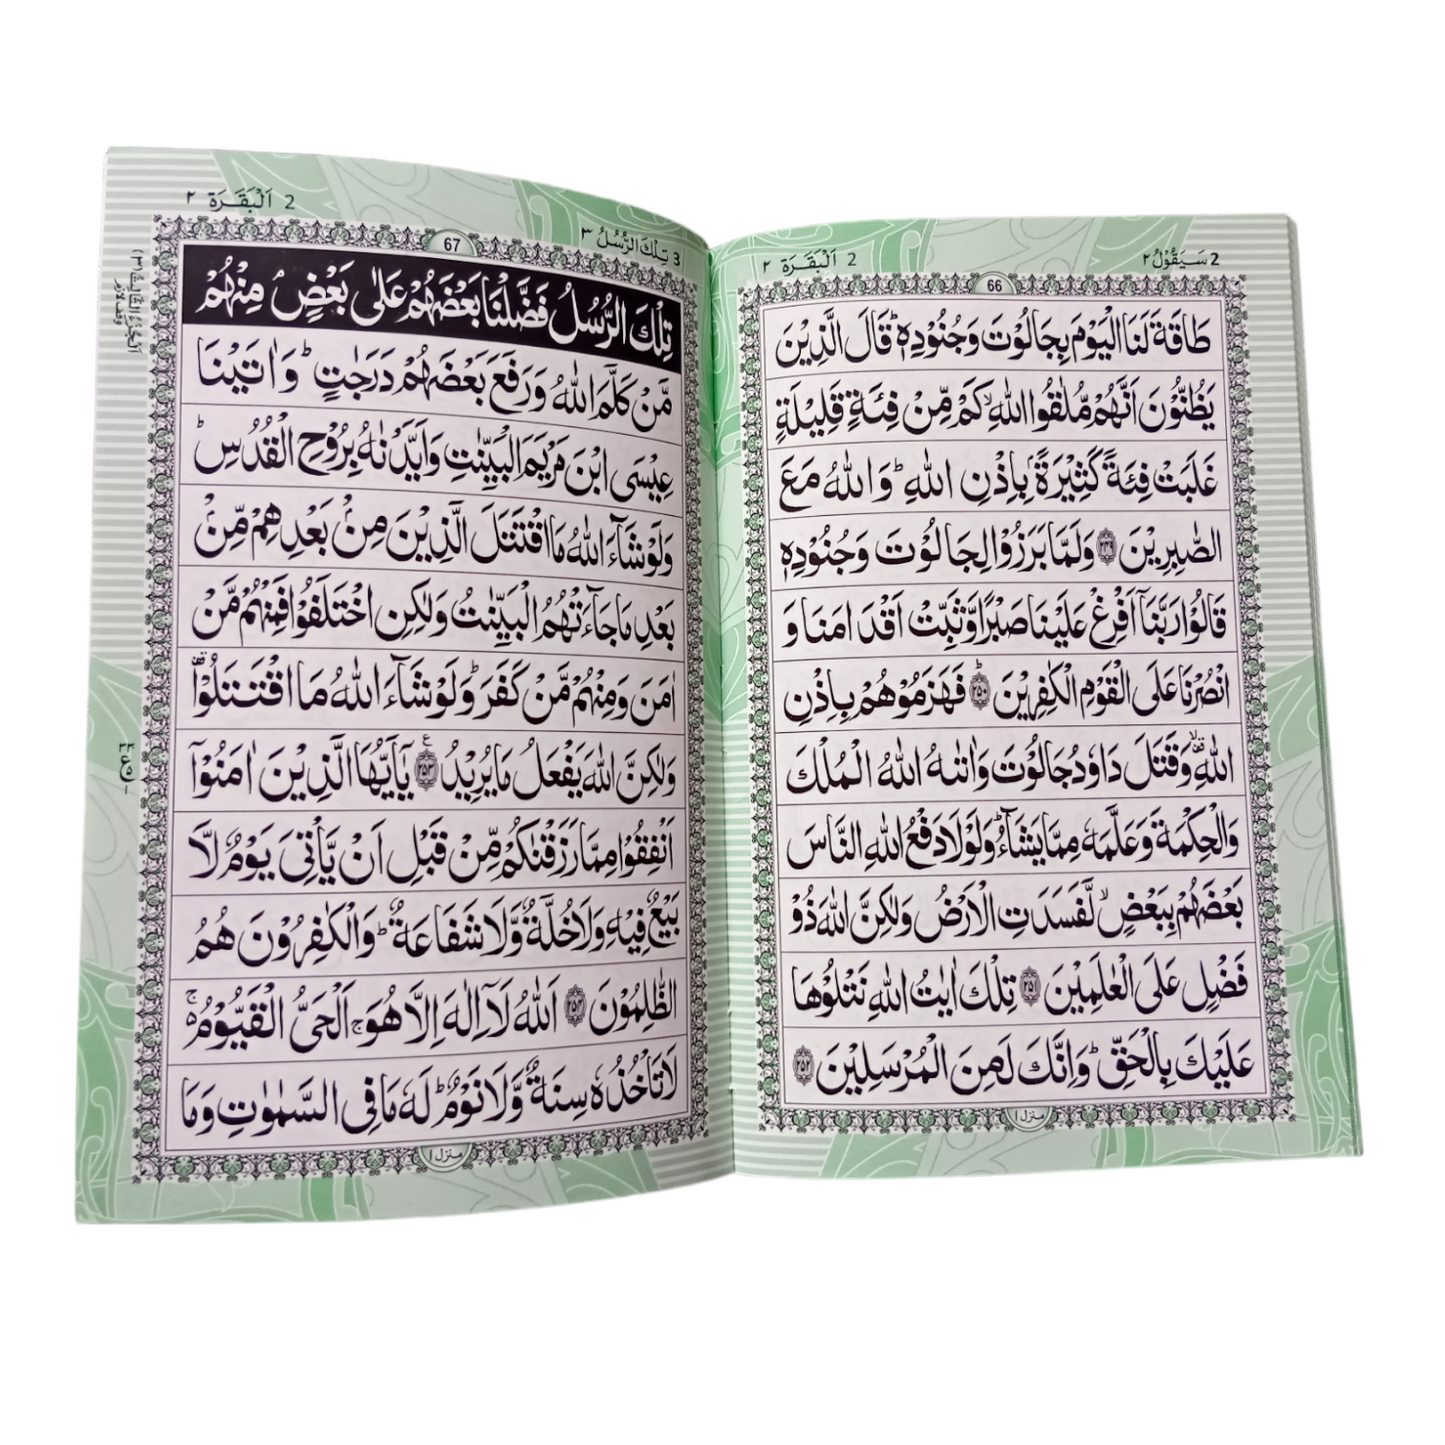 2 سَيَقُوْلُ ٢
2 اَلْبَقَرَة ٢
66
طَاقَةَ لَنَا الْيَوْمَ بِجَالُوْتَ وَجُنُوْدِهٖ ؕ قَالَ الَّذِيْنَ
يَظُنُّوْنَ اَنَّهُمْ مُّلٰقُوا اللّٰهِ ۙ كَمْ مِّنْ فِئَةٍ قَلِيْلَةٍ
غَلَبَتْ فِئَةً كَثِيْرَةً ۢ بِاِذْنِ اللّٰهِ ؕ وَاللّٰهُ مَعَ
الصّٰبِرِيْنَ ﴿۲۴۹﴾ وَلَمَّا بَرَزُوْا لِجَالُوْتَ وَجُنُوْدِهٖ
قَالُوْا رَبَّنَاۤ اَفْرِغْ عَلَيْنَا صَبْرًا وَّثَبِّتْ اَقْدَامَنَا وَ
انْصُرْنَا عَلَى الْقَوْمِ الْكٰفِرِيْنَ ؕ ﴿۲۵۰﴾ فَهَزَمُوْهُمْ بِاِذْنِ
اللّٰهِ ۙ۫ وَقَتَلَ دَاوٗدُ جَالُوْتَ وَاٰتٰىهُ اللّٰهُ الْمُلْكَ
وَالْحِكْمَةَ وَعَلَّمَهٗ مِمَّا يَشَآءُ ؕ وَلَوْلَا دَفْعُ اللّٰهِ النَّاسَ
بَعْضَهُمْ بِبَعْضٍ ۙ لَّفَسَدَتِ الْاَرْضُ وَلٰكِنَّ اللّٰهَ ذُوْ
فَضْلٍ عَلَى الْعٰلَمِيْنَ ﴿۲۵۱﴾ تِلْكَ اٰيٰتُ اللّٰهِ نَتْلُوْهَا
عَلَيْكَ بِالْحَقِّ ؕ وَاِنَّكَ لَمِنَ الْمُرْسَلِيْنَ ﴿۲۵۲﴾
منزل ١
3 تِلْكَ الرُّسُلُ ٣
2 اَلْبَقَرَة ٢
67
تِلْكَ الرُّسُلُ فَضَّلْنَا بَعْضَهُمْ عَلٰى بَعْضٍ ۘ مِنْهُمْ
مَّنْ كَلَّمَ اللّٰهُ وَرَفَعَ بَعْضَهُمْ دَرَجٰتٍ ؕ وَاٰتَيْنَا
عِيْسَى ابْنَ مَرْيَمَ الْبَيِّنٰتِ وَاَيَّدْنٰهُ بِرُوْحِ الْقُدُسِ ؕ
وَلَوْ شَآءَ اللّٰهُ مَا اقْتَتَلَ الَّذِيْنَ مِنْۢ بَعْدِهِمْ مِّنْۢ
بَعْدِ مَا جَآءَتْهُمُ الْبَيِّنٰتُ وَلٰكِنِ اخْتَلَفُوْا فَمِنْهُمْ مَّنْ
اٰمَنَ وَمِنْهُمْ مَّنْ كَفَرَ ؕ وَلَوْ شَآءَ اللّٰهُ مَا اقْتَتَلُوْا
وَلٰكِنَّ اللّٰهَ يَفْعَلُ مَا يُرِيْدُ ﴿۲۵۳﴾ يٰۤاَيُّهَا الَّذِيْنَ اٰمَنُوْۤا
اَنْفِقُوْا مِمَّا رَزَقْنٰكُمْ مِّنْ قَبْلِ اَنْ يَّاْتِيَ يَوْمٌ لَّا
بَيْعٌ فِيْهِ وَلَا خُلَّةٌ وَّلَا شَفَاعَةٌ ؕ وَالْكٰفِرُوْنَ هُمُ
الظّٰلِمُوْنَ ﴿۲۵۴﴾ اَللّٰهُ لَاۤ اِلٰهَ اِلَّا هُوَ ۚ اَلْحَيُّ الْقَيُّوْمُ ۚ
لَا تَاْخُذُهٗ سِنَةٌ وَّلَا نَوْمٌ ؕ لَهٗ مَا فِي السَّمٰوٰتِ وَمَا
منزل ١